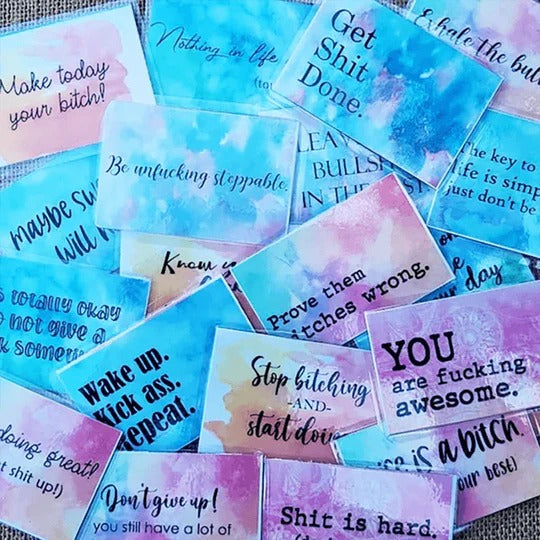 Make today
your bitch!
Nothing in life
(to
Get
Shit
Done.
Exhale the bull
Be unfucking stoppable.
LEAV
BULLSH
IN THE PAST
The key to
life is simp
just don't be
maybe sw
will h
Know y
Prove them
itches wrong.
your day
s totally okay
o not give a
k somew
Wake up.
Kick ass.
Repeat.
Stop bitching
-AND-
start doin
YOU
are fucking
awesome.
ce is a bitch.
our best)
doing great!
t shit up!)
Don't give up!
you still have a lot of
Shit is hard.